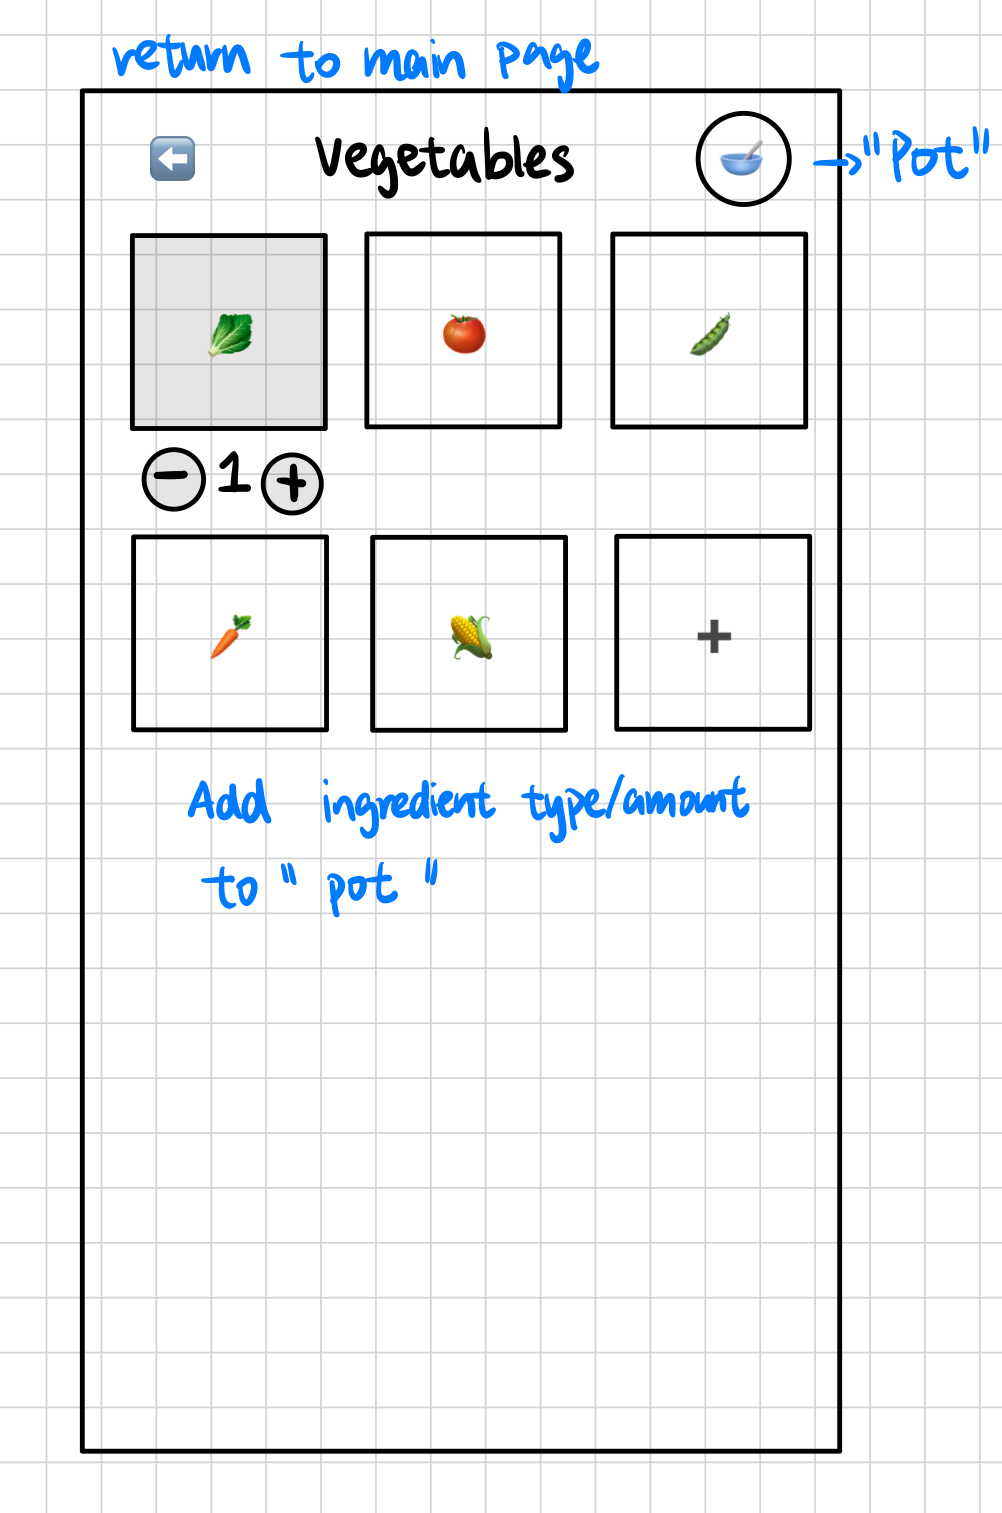 return to main page
Vegetables
"Pot"
1
Add ingredient type/amount
to "pot"